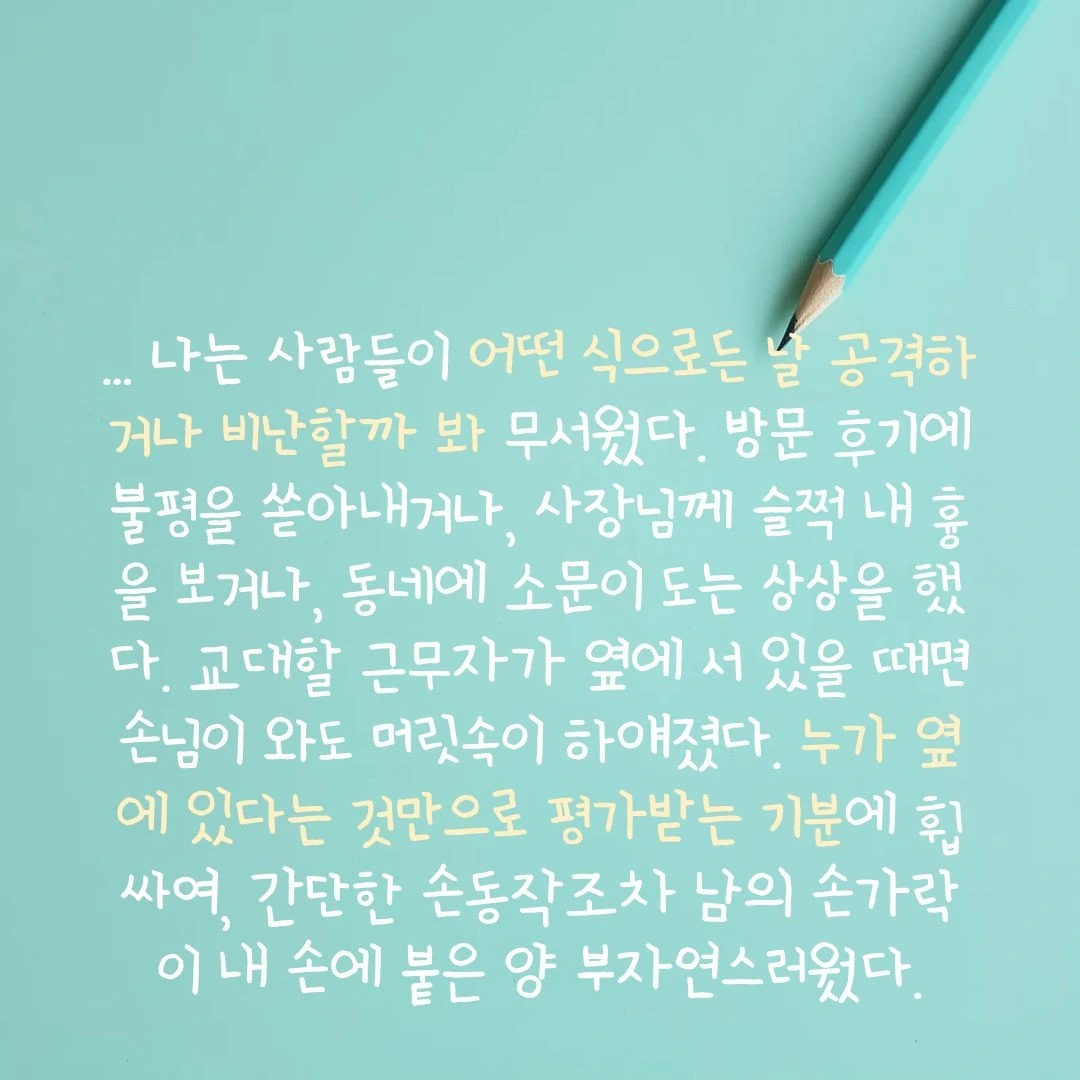 ... 나는 사람들이 어떤 식으로든 날 공격하
거나 비난할까 봐 무서웠다. 방문 후기에
불평을 쏟아내거나, 사장님께 슬쩍 내 흉
을 보거나, 동네에 소문이 도는 상상을 했
다. 교대할 근무자가 옆에 서 있을 때면
손님이 와도 머릿속이 하얘졌다. 누가 옆
에 있다는 것만으로 평가받는 기분에 휩
싸여, 간단한 손동작조차 남의 손가락
이 내 손에 붙은 양 부자연스러웠다.